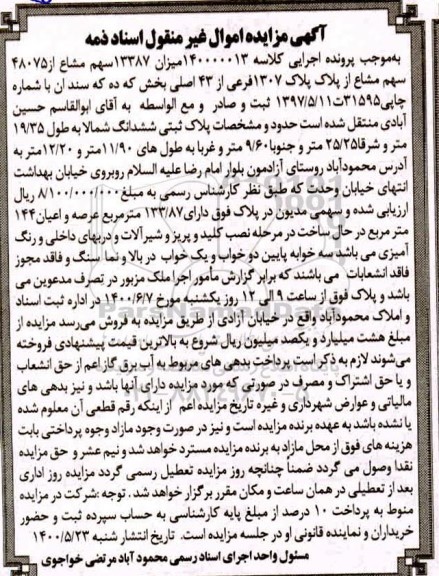 آگهی مزایده اموال غیر منقول اسناد ذمه
به‌موجب پرونده اجرایی کلاسه ۱۴۰۰۰۰۰۱۳میزان ۱۳۳۸۷سهم مشاع از۴۸۰۷۵
سهم مشاع از پلاک پلاک ۱۳۰۷فرعی از ۴۳ اصلی بخش که ده که سند ان با شماره
چاپی۳۱۵۹۵ت۱۳۹۷/۵/۱۱ ثبت و صادر و مع الواسطه به آقای ابوالقاسم حسین
آبادی منتقل شده است حدود و مشخصات پلاک ثبتی ششدانگ شمالا به طول ۱۹/۳۵
متر و شرقا۲۵/۲۵ متر و جنوبا۹/۶۰ متر و غربا به طول های ۱۱/۹۰متر و ۱۲/۲۰متر به
آدرس محمودآباد روستای آزادمون بلوار امام رضا علیه السلام روبروی خیابان بهداشت
انتهای خیابان وحدت که طبق نظر کارشناس رسمی به مبلغ۸/۱۰۰/۰۰۰/۰۰۰ ریال
ارزیابی شده و سهمی مدیون در پلاک فوق دارای۱۳۳/۸۷ مترمربع عرصه و اعیان۱۴۴
متر مربع در حال ساخت در مرحله نصب کلید و پریز و شیرآلات و دربهای داخلی و رنگ
آمیزی می باشد سه خوابه پایین دو خواب و یک خواب در بالا و نما سنگ و فاقد مجوز
فاقد انشعابات می باشند که برابر گزارش مأمور اجرا ملک مزبور در تصرف مدعوین می
باشد و پلاک فوق از ساعت ۹ الی ۱۲ روز یکشنبه مورخ ۱۴۰۰/۶/۷ در اداره ثبت اسناد
و املاک محمودآباد واقع در خیابان آزادی از طریق مزایده به فروش می‌رسد مزایده از
مبلغ هشت میلیارد و یکصد میلیون ریال شروع به بالاترین قیمت پیشنهادی فروخته
می‌شوند لازم به ذکر است پرداخت بدهی های مربوط به آب برق گاز اعم از حق انشعاب
و یا حق اشتراک و مصرف در صورتی که مورد مزایده دارای آنها باشد و نیز بدهی های
مالیاتی و عوارض شهرداری و غیره تاریخ مزایده اعم از اینکه رقم قطعی آن معلوم شده
یا نشده باشد به عهده برنده مزایده است و نیز در صورت وجود مازاد وجوه پرداختی بابت
هزینه های فوق از محل مازاد به برنده مزایده مسترد خواهد شد و نیم عشر و حق مزایده
نقدا وصول می گردد ضمناً چنانچه روز مزایده تعطیل رسمی گردد مزایده روز اداری
بعد از تعطیلی در همان ساعت و مکان مقرر برگزار خواهد شد . توجه :شرکت در مزایده
منوط به پرداخت ۱۰ درصد از مبلغ پایه کارشناسی به حساب سپرده ثبت و حضور
خریداران و نماینده قانونی او در جلسه مزایده است. تاریخ انتشار شنبه ۱۴۰۰/۵/۲۳
مسئول واحد اجرای اسناد رسمی محمود آباد مرتضی خواجوی